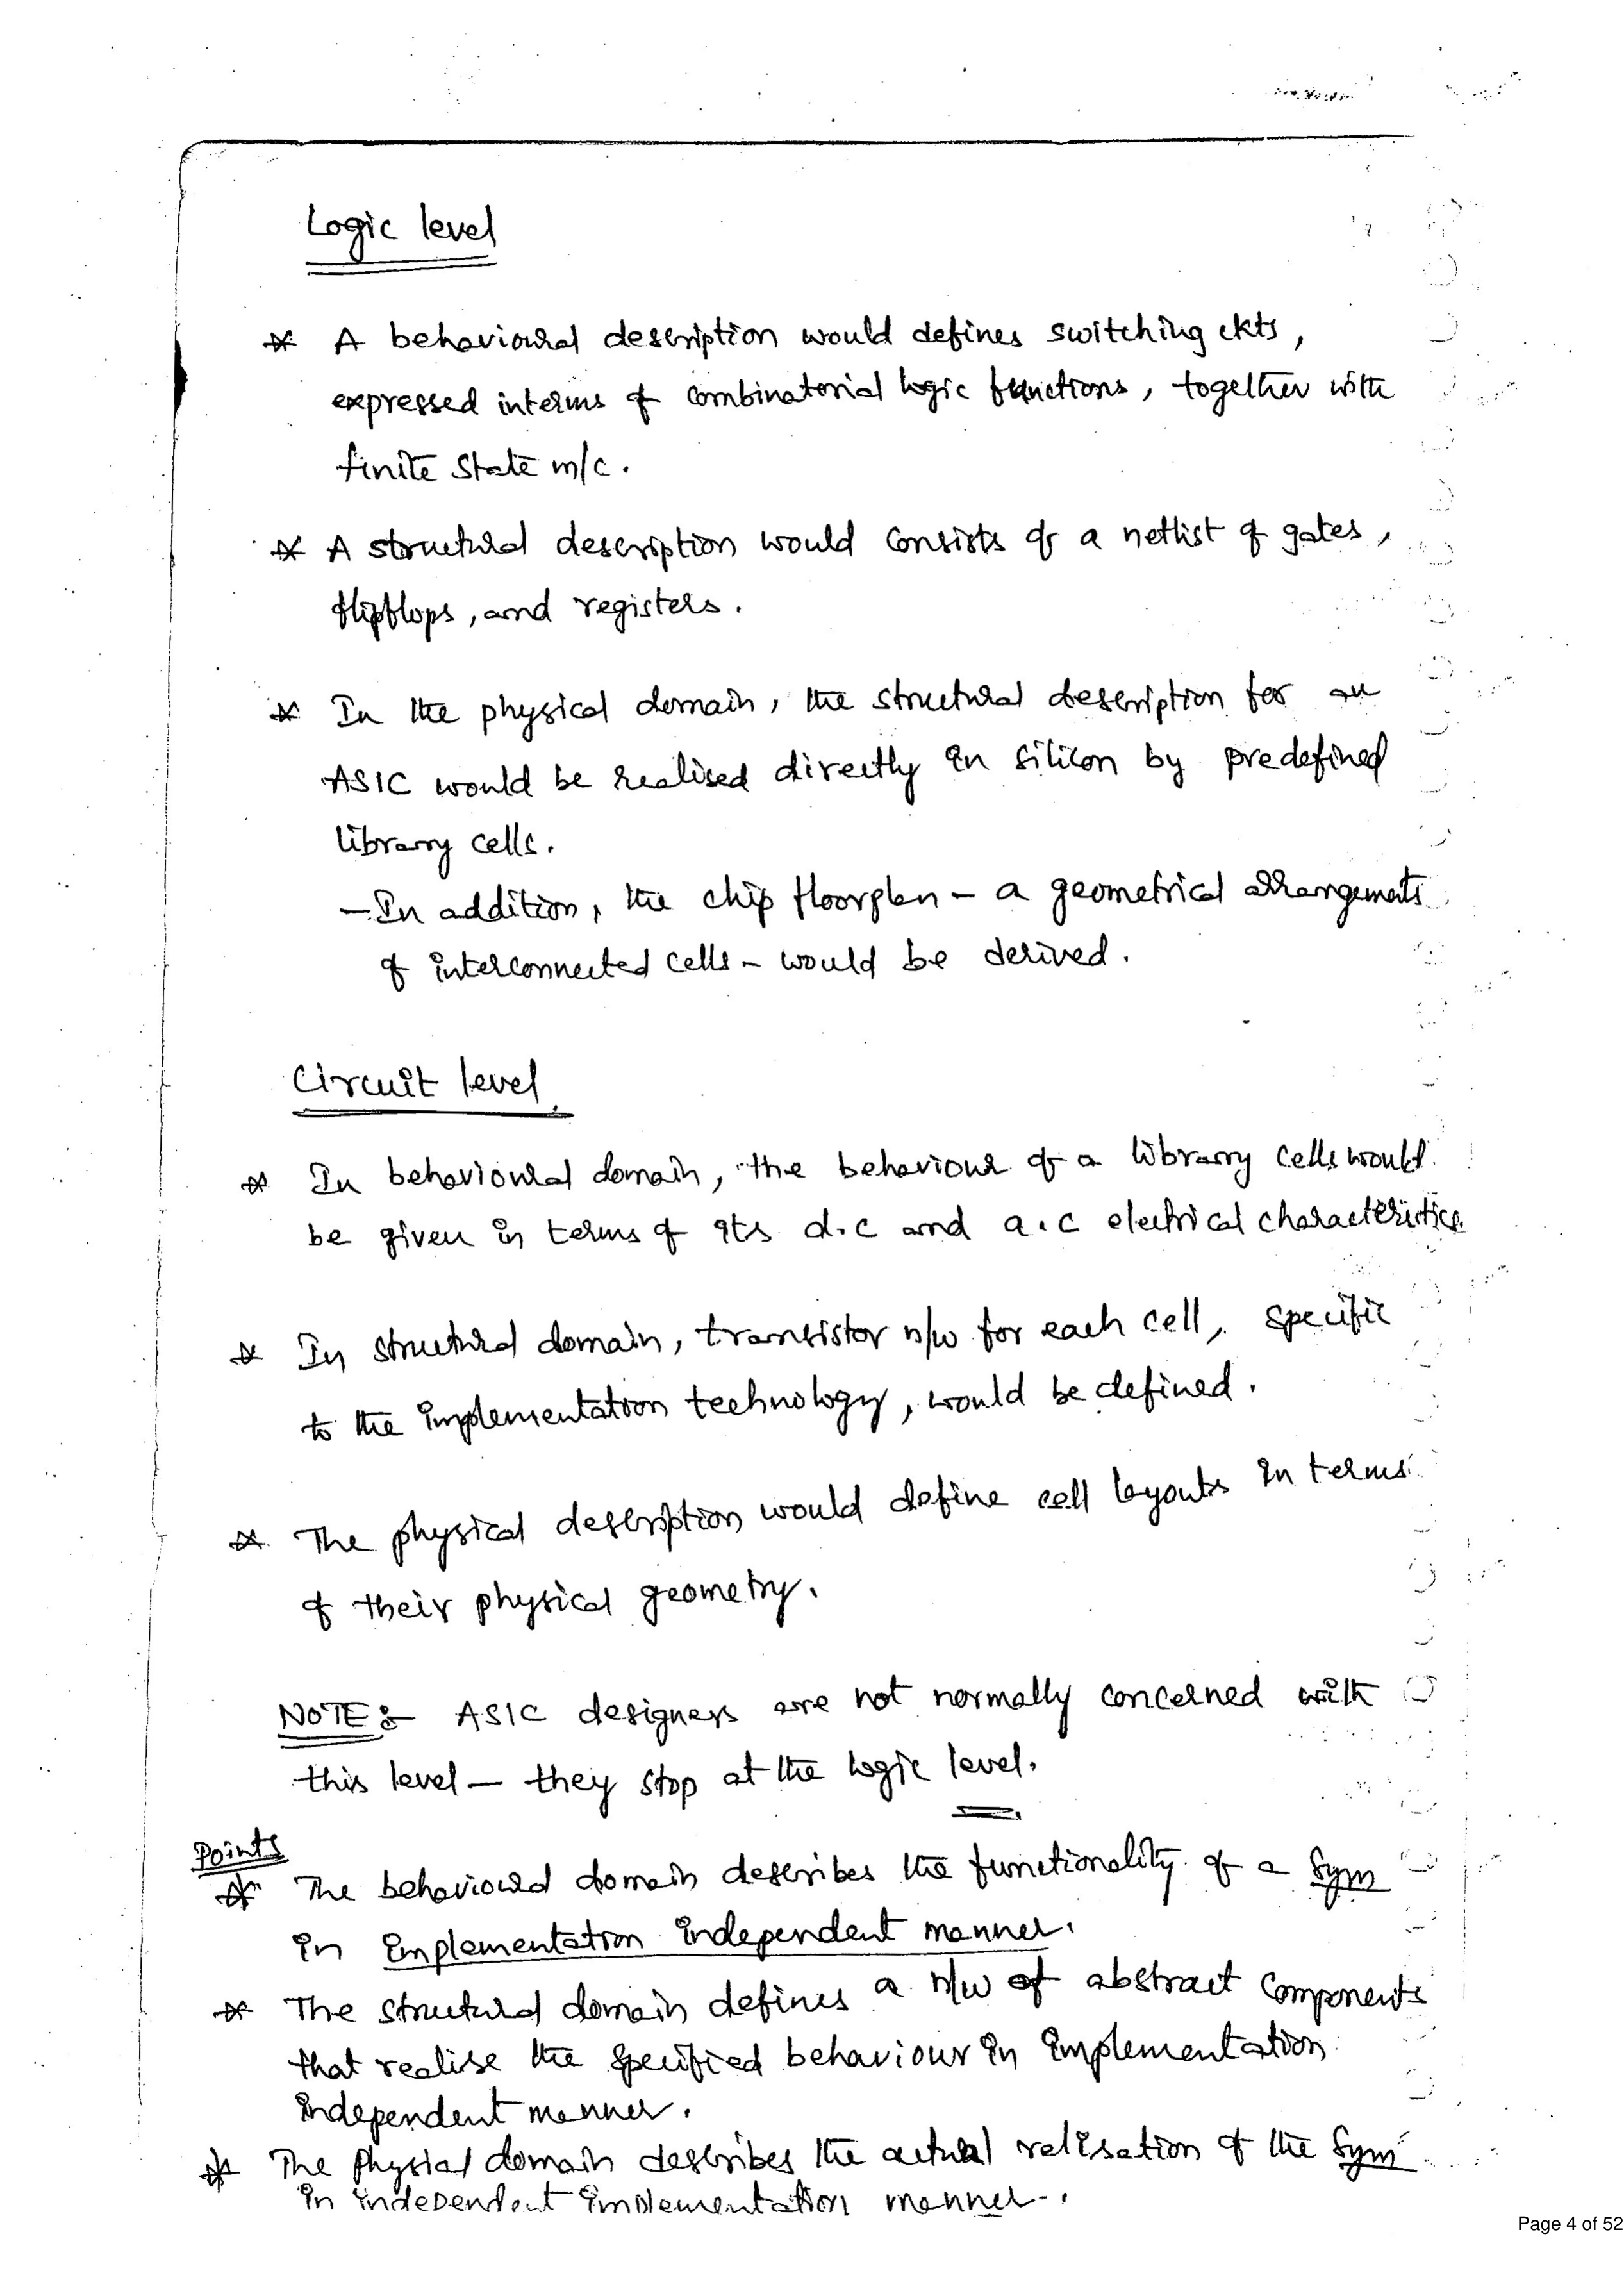 Logic level
* A behavioural description would defines switching ckts,
expressed interms of combinatorial logic functions, together with
finite state m/c.
* A structural description would consists of a netlist of gates,
flipflops, and registers.
* In the physical domain, the structural description for an
ASIC would be realised directly in silicon by predefined
library cells.
- In addition, the chip floorplan - a geometrical arrangements
of interconnected cells - would be derived.
Circuit level
* In behavioural domain, the behaviour of a library cells would
be given in terms of its d.c and a.c electrical characteristics
* In structural domain, transistor n/w for each cell, specific
to the implementation technology, would be defined.
* The physical description would define cell layouts in terms
of their physical geometry.
NOTE:- ASIC designers are not normally concerned with
this level - they stop at the logic level.
Points
* The behavioural domain describes the functionality of a sym
in implementation independent manner.
* The structural domain defines a n/w of abstract components
that realise the specified behaviour in implementation
independent manner.
* The physial domain describes the actual relisation of the sym
in independent implementation manner-.
Page 4 of 52